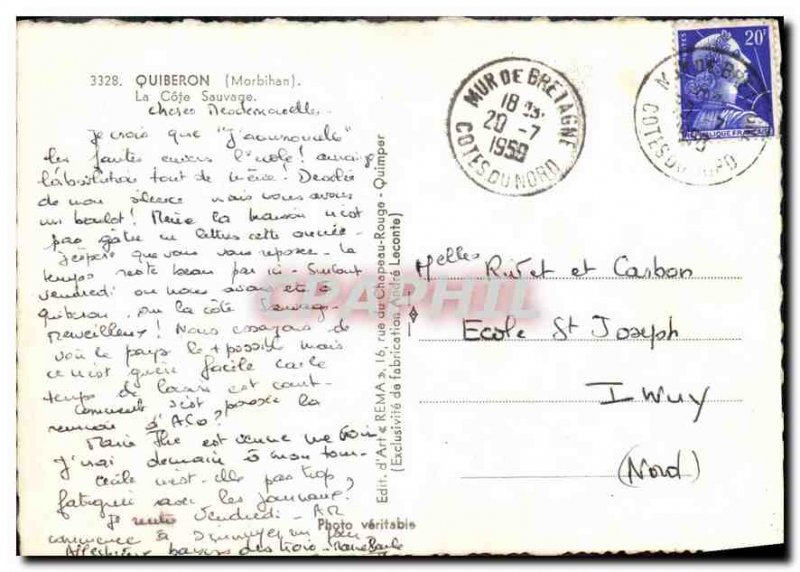 3328. QUIBERON (Morbihan).
La Côte Sauvage.
chères Desdemoiselles
Je crois que "J'accumule"
les fautes envers l'école !
l'absolution tout de même ! Désolée
de mon silence mais nous avons
un boulot ! Même la maison n'est
pas gâtée en lettres cette année.
J'espère que vous vous reposez. Le
temps reste beau par ici. Surtout
vendredi où nous avons été à
Quiberon, sur la côte sauvage.
Merveilleux ! Nous essayons de
voir le pays le + possible mais
ce n'est guère facile car le
temps de loisirs est court.
Comment s'est passée la
réunion d'ACO ?
Marie Thé est venue me voir
J'irai demain à mon tour.
Cécile n'est-elle pas trop
fatiguée avec les journaux ?
Je rentre Vendredi -
commence à s'ennuyer un peu
bons baisers des trois - Marie Paule
Photo véritable
Edit. d'Art « REMA », 16, rue du Chapeau-Rouge - Quimper
(Exclusivité de fabrication André Leconte)
MUR DE BRETAGNE
18 H
20 - 7
1959
COTES DU NORD
20F
POSTES
REPUBLIQUE FRANÇAISE
MUR DE BRETAGNE
COTES DU NORD
Melles Rivet et Carbon
Ecole St Joseph
Iwuy
(Nord)
CPAPHIL